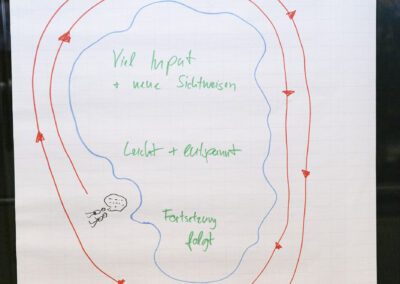 Viel Input
+ neue Sichtweisen
Leicht + entspannt
Fortsetzung
folgt